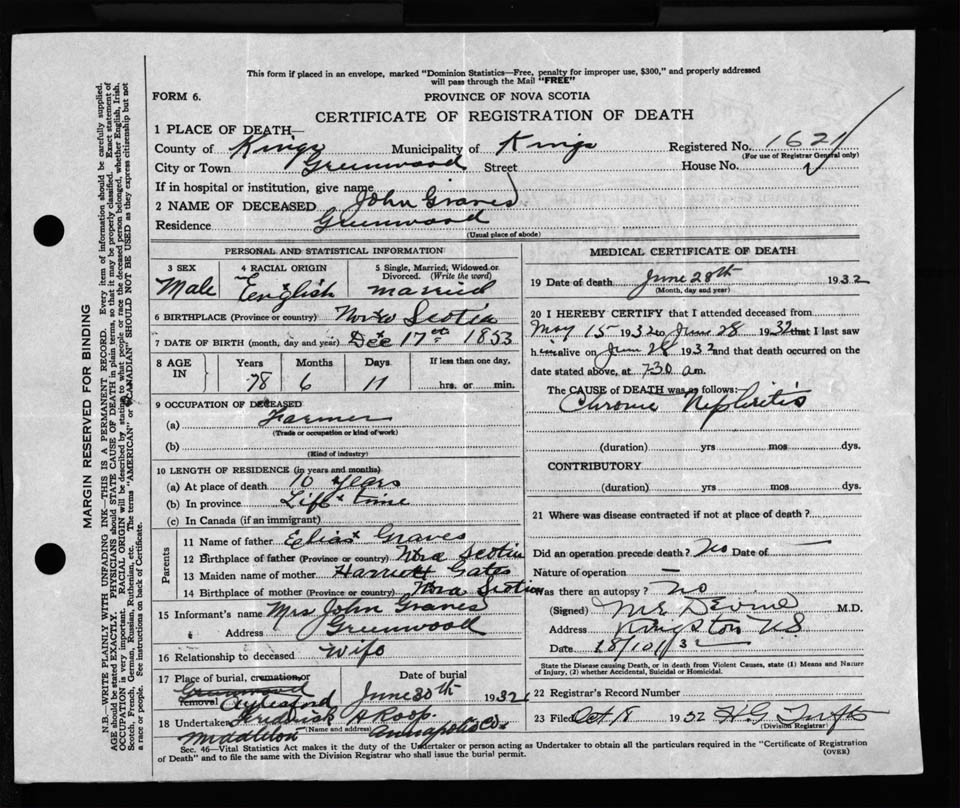 This form if placed in an envelope, marked "Dominion Statistics—Free, penalty for improper use, $300," and properly addressed
will pass through the Mail "FREE"
FORM 6.
PROVINCE OF NOVA SCOTIA
CERTIFICATE OF REGISTRATION OF DEATH
1 PLACE OF DEATH—
County of Kings Municipality of Kings Registered No. 1621
(For use of Registrar General only)
City or Town Greenwood Street House No.
If in hospital or institution, give name
2 NAME OF DECEASED John Graves
Residence Greenwood
(Usual place of abode)
PERSONAL AND STATISTICAL INFORMATION
3 SEX 4 RACIAL ORIGIN 5 Single, Married, Widowed or
Divorced. (Write the word)
Male English married
6 BIRTHPLACE (Province or country) Nova Scotia
7 DATE OF BIRTH (month, day and year) Dec 17th 1853
8 AGE IN Years Months Days If less than one day,
78 6 11 hrs. or min.
9 OCCUPATION OF DECEASED
(a) Farmer
(Trade or occupation or kind of work)
(b)
(Kind of industry)
10 LENGTH OF RESIDENCE (in years and months)
(a) At place of death 10 years
(b) In province Life time
(c) In Canada (if an immigrant)
Parents
11 Name of father Elias Graves
12 Birthplace of father (Province or country) Nova Scotia
13 Maiden name of mother Harriett Gates
14 Birthplace of mother (Province or country) Nova Scotia
15 Informant's name Mrs John Graves
Address Greenwood
16 Relationship to deceased Wife
17 Place of burial, cremation, or Date of burial
Greenwood
removal Aylesford June 30th 1932
18 Undertaker Frederick H Roop.
(Name and address)
Middleton Annapolis Co.
MEDICAL CERTIFICATE OF DEATH
19 Date of death June 28th 1932
(Month, day and year)
20 I HEREBY CERTIFY that I attended deceased from
May 15 1932 to June 28 1932 that I last saw
him alive on June 28 1932 and that death occurred on the
date stated above, at 7.30 a.m.
The CAUSE OF DEATH was as follows:
Chronic Nephritis
(duration) yrs mos dys.
CONTRIBUTORY
(duration) yrs mos dys.
21 Where was disease contracted if not at place of death?
Did an operation precede death? No Date of —
Nature of operation —
Was there an autopsy? no
(Signed) M.D.
Address Kingston NS
Date 18/10/32
State the Disease causing Death, or in death from Violent Causes, state (1) Means and Nature
of Injury, (2) whether Accidental, Suicidal or Homicidal.
22 Registrar's Record Number
23 Filed Oct 18 1932
(Division Registrar)
Sec. 46—Vital Statistics Act makes it the duty of the Undertaker or person acting as Undertaker to obtain all the particulars required in the "Certificate of Registration
of Death" and to file the same with the Division Registrar who shall issue the burial permit.
(OVER)
MARGIN RESERVED FOR BINDING
N.B.—WRITE PLAINLY WITH UNFADING INK—THIS IS A PERMANENT RECORD. Every item of information should be carefully supplied.
AGE should be stated EXACTLY. PHYSICIANS should STATE CAUSE OF DEATH in plain terms, so that it may be properly classified. Exact statement of
OCCUPATION is very important. RACIAL ORIGIN will be described by stating to what people or race the deceased person belonged, whether English, Irish,
Scotch, French, German, Russian, Ruthenian, etc. The terms "AMERICAN" or "CANADIAN" SHOULD NOT BE USED as they express citizenship but not
a race or people. See instructions on back of Certificate.